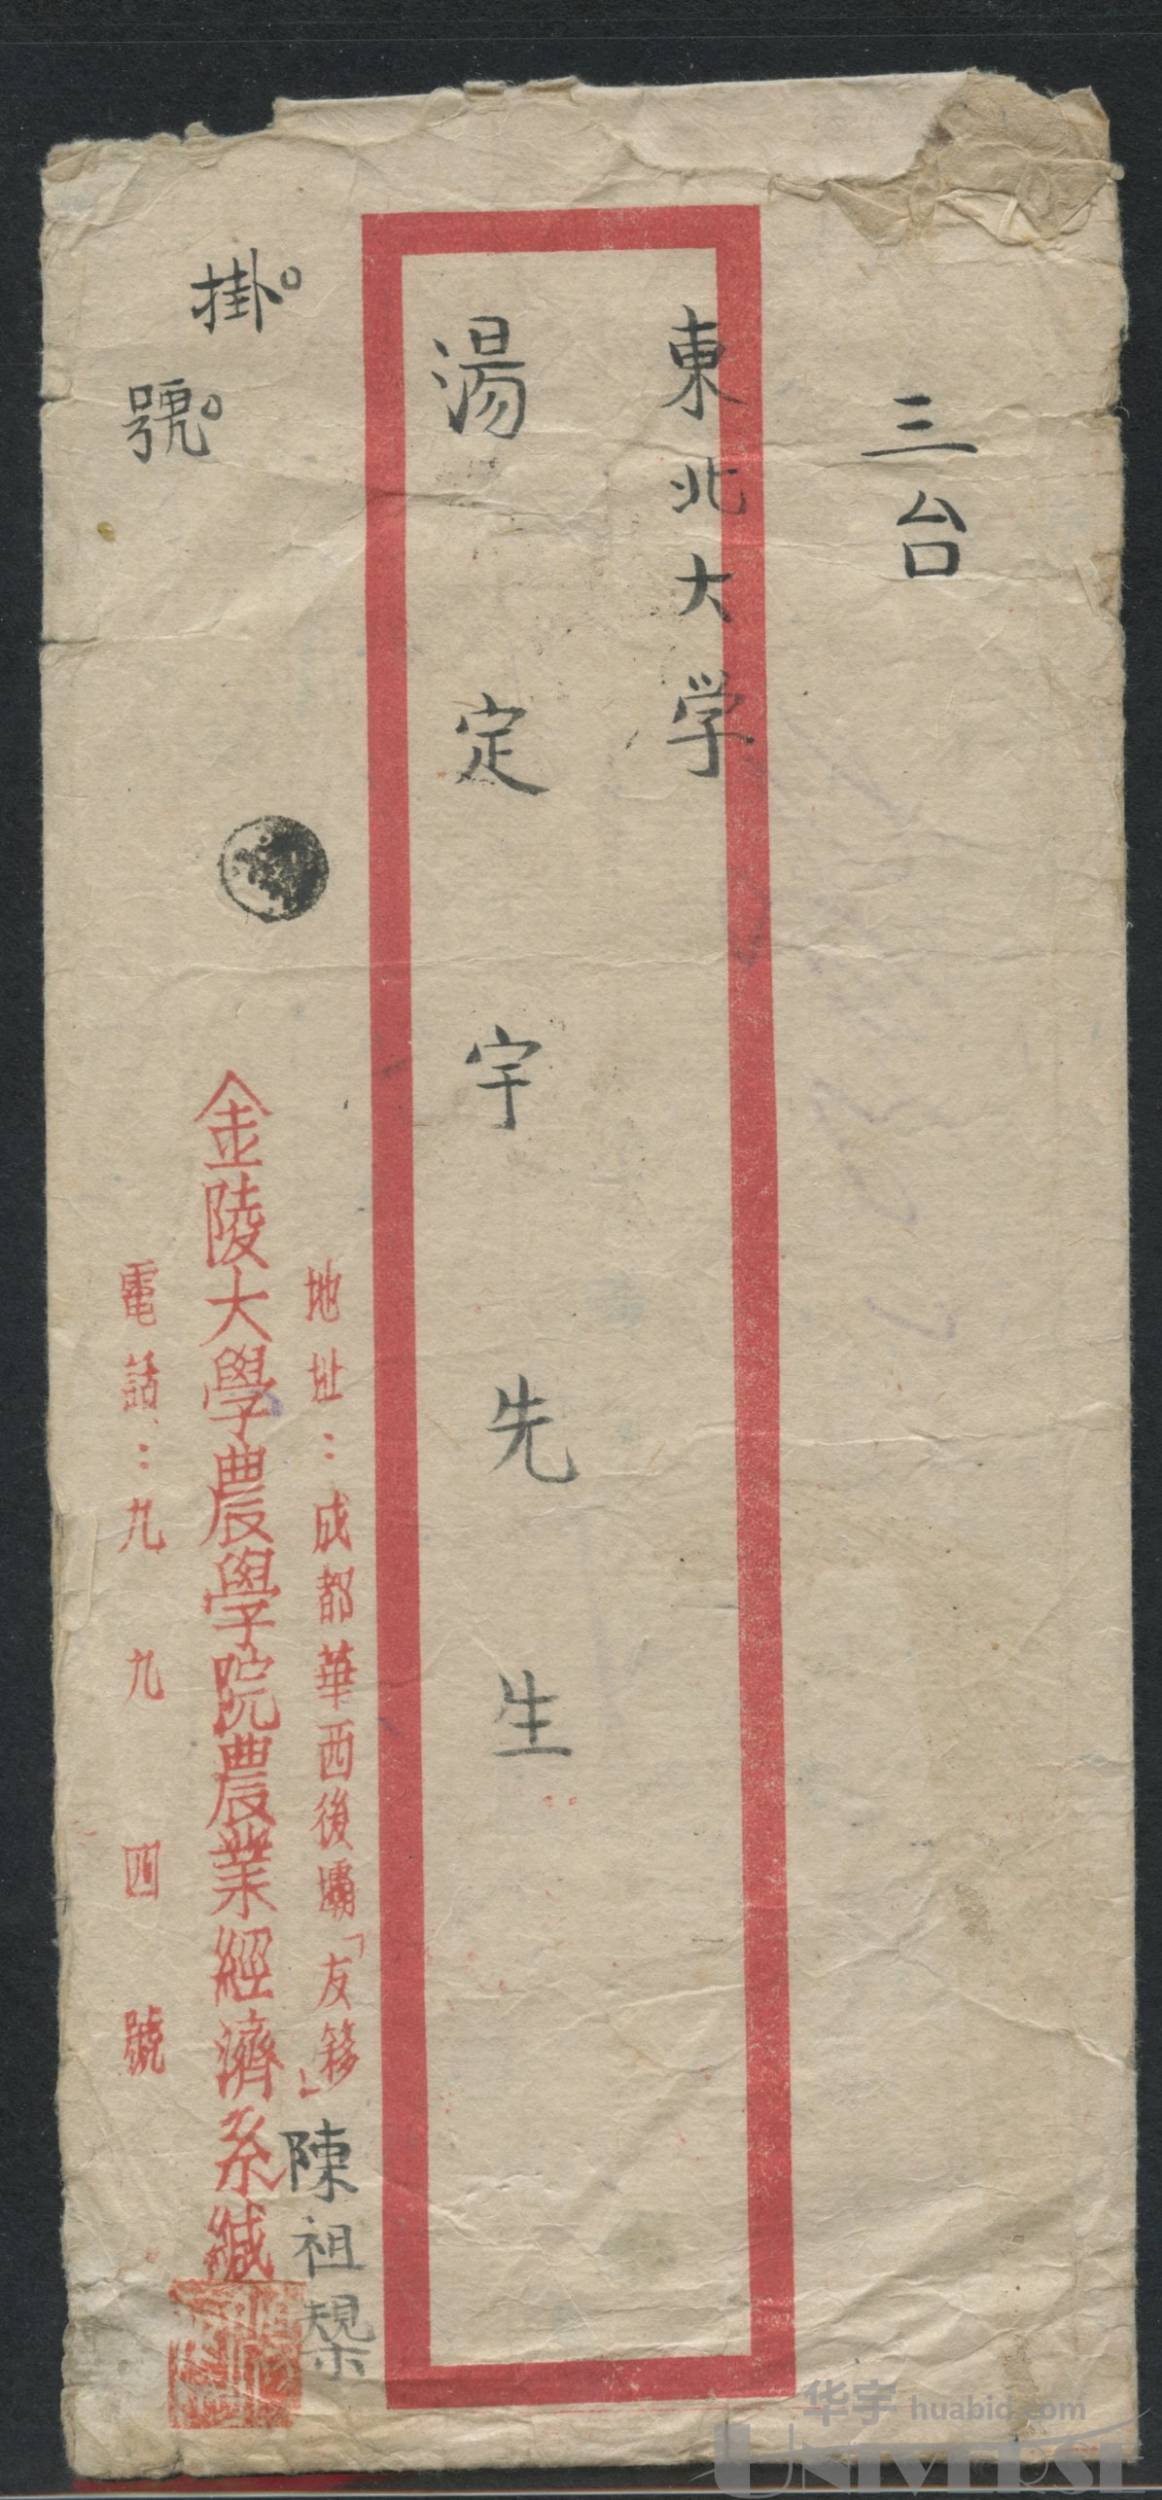 三台
東北大学
湯定宇先生
掛號
地址：成都華西後壩「友簃」
陳祖槼
金陵大學農學院農業經濟系緘
電話：九九四號
华宇 huabid.com
UNIVERSE